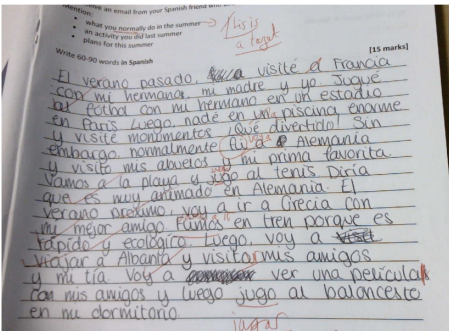 e an email from your Spanish friend
ntention:
• what you normally do in the summer
• an activity you did last summer
• plans for this summer
This is
a target
Write 60-90 words in Spanish
[15 marks]
El verano pasado, visité a Francia
con mi hermano, mi madre y yo Jugué
al fútbol con mi hermano en un estadio
en París Luego, nadé en una piscina enorme
y visité monumentos ¡Qué divertido! Sin
embargo, normalmente fui a Alemania
y visito mis abuelos y mi prima favorita.
Vamos a la playa y jugo al tenis Diría
que es muy animado en Alemania. El
verano próximo, voy a ir a Grecia con
mi mejor amigo en tren porque es
rápido y ecológico Luego, voy a
viajar a Albanta y visitar mis amigos
y mi tía Voy a ver una película
con mis amigos y luego jugo al baloncesto
en mi dormitorio
jugar